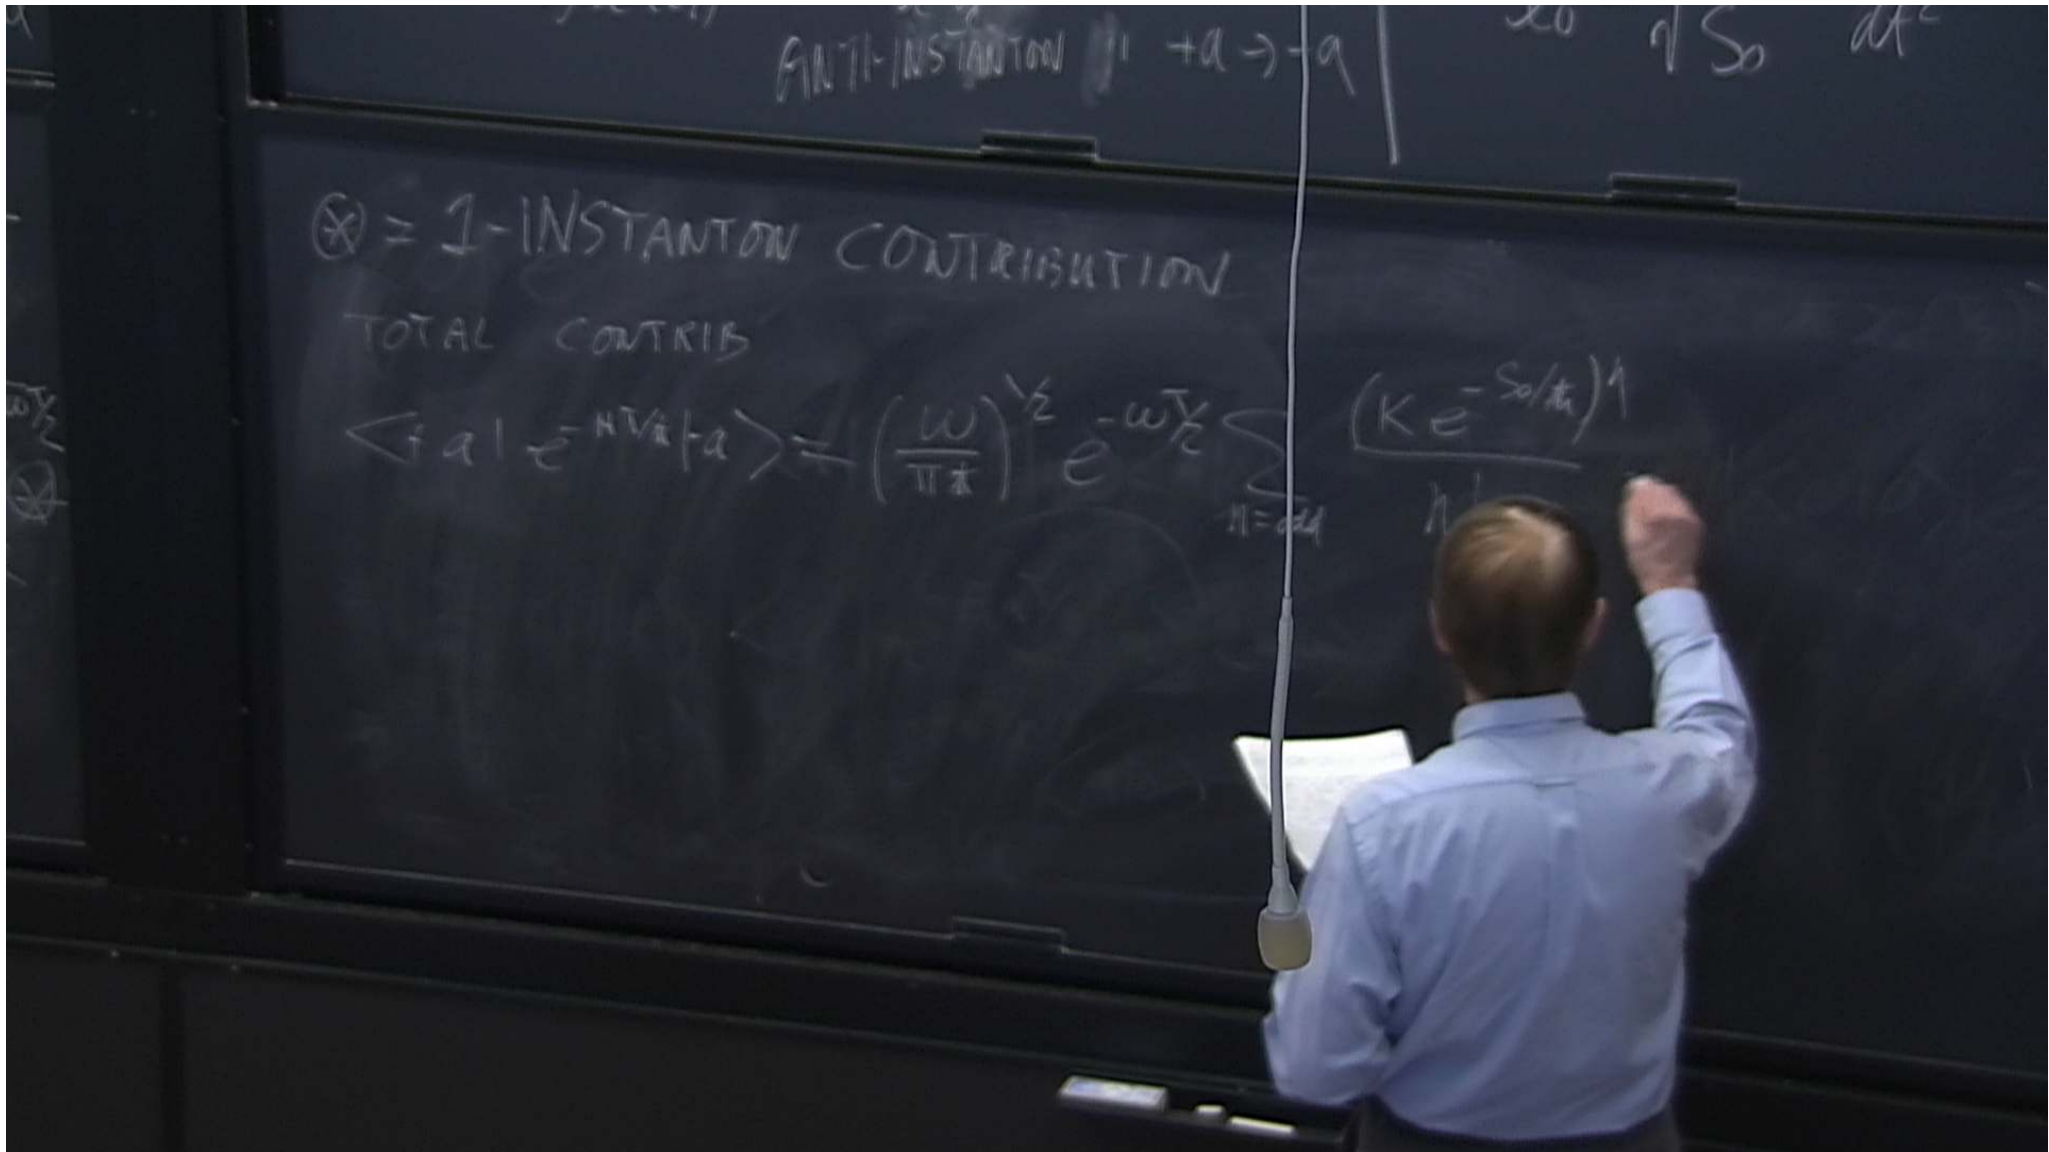 ANTI-INSTANTON " +a → -a
√S₀ dt²
⊛ = 1-INSTANTON CONTRIBUTION
TOTAL CONTRIB
<+a| e^{-HT/ħ} |-a> = (ω/πħ)^{1/2} e^{-ωT/2} Σ_{n=odd} (K e^{-S₀/ħ})^n / n!
ωT/2
⊛